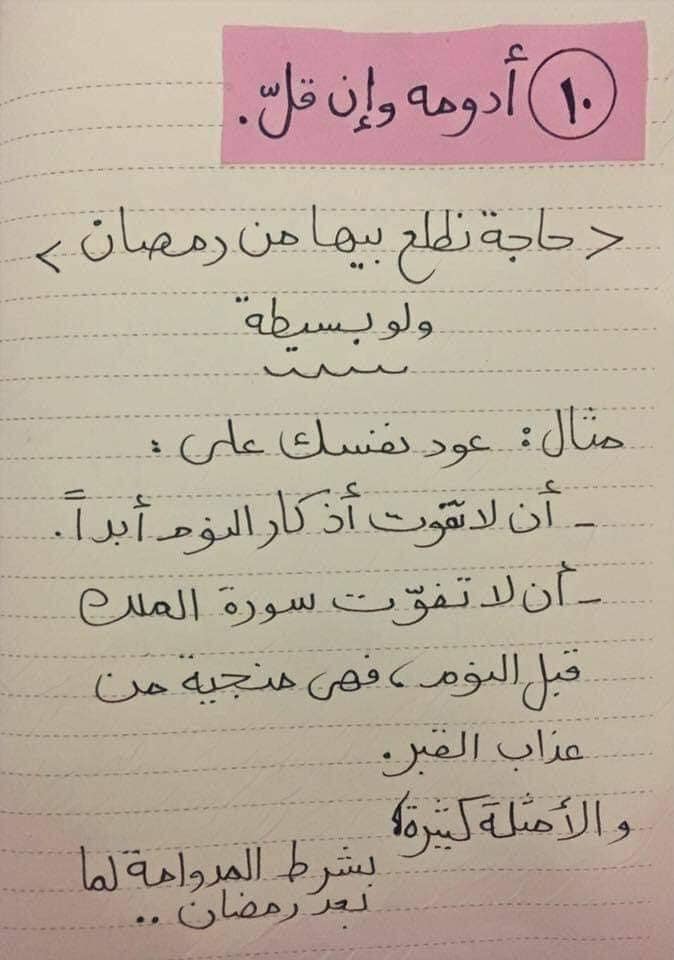 ١٠ أدومه وإن قلّ.
< حاجة نطلع بيها من رمضان >
ولو بسيطة
مثال: عود نفسك على:
- أن لا تفوت أذكار النوم أبداً.
- أن لا تفوّت سورة الملك
قبل النوم، فهي منجية من
عذاب القبر.
والأمثلة كثيرة،
بشرط المداومة لما
بعد رمضان ..